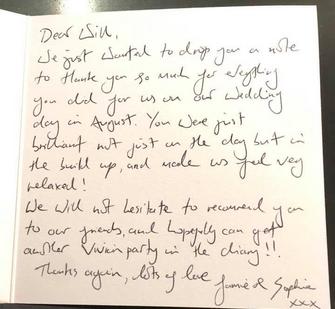 Dear Will,
We just wanted to drop you a note
to thank you so much for everything
you did for us on our wedding
day in August. You were just
brilliant not just on the day but in
the build up, and made us feel very
relaxed!
We will not hesitate to recommend you
to our friends, and hopefully can get
another party in the diary!!
Thanks again, lots of love Jamie & Sophie
xxx